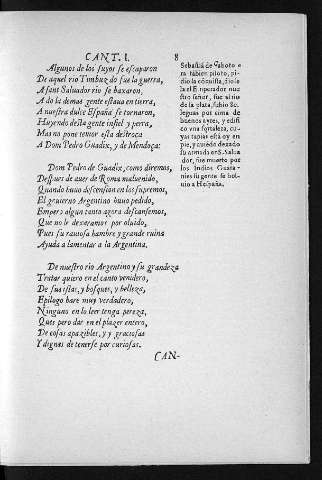 CANT. I.
8
Algunos de los suyos se escaparon
De aquel rio Timbuz do fue la guerra,
A sant Saluador rio se baxaron,
A do la demas gente estaua en tierra,
A nuestra dulce España se tornaron,
Huyendo desta gente infiel y perra,
Mas no pone temor esta destroca
A Dom Pedro Guadix, y de Mendoça:
Dom Pedro de Guadix, como diremos,
Despues de auer de Roma mal venido,
Quando huuo descension en los supremos,
El gouierno Argentino huuo pedido,
Empero algun tanto agora descansemos,
Que no le dexaremos por oluido,
Pues su rauiosa hambre y grande ruina
Ayuda a lamentar a la Argentina.
De nuestro rio Argentino y su grandeza
Tratar quiero en el canto venidero,
De sus islas, y bosques, y belleza,
Epilogo hare muy verdadero,
Ninguno en lo leer tenga pereza,
Que espero dar en el plazer entero,
De cosas apazibles, y y graciosas
Y dignas de tenerse por curiosas.
CAN-
Sebastiã de Gaboto e
ra tãbien piloto, pi-
dio la cõquista, dio se
la el Emperador nue
stro señor, fue al rio
de la plata, subio 80.
leguas por cima de
buenos ayres, y edifi
co vna fortaleza, cu-
yas tapias està oy en
pie, y cuẽdo dexado
su armada en S. Salua
dor, fue muerto por
los Indios Guara-
nies su gente se bol-
uio a Hespaña.